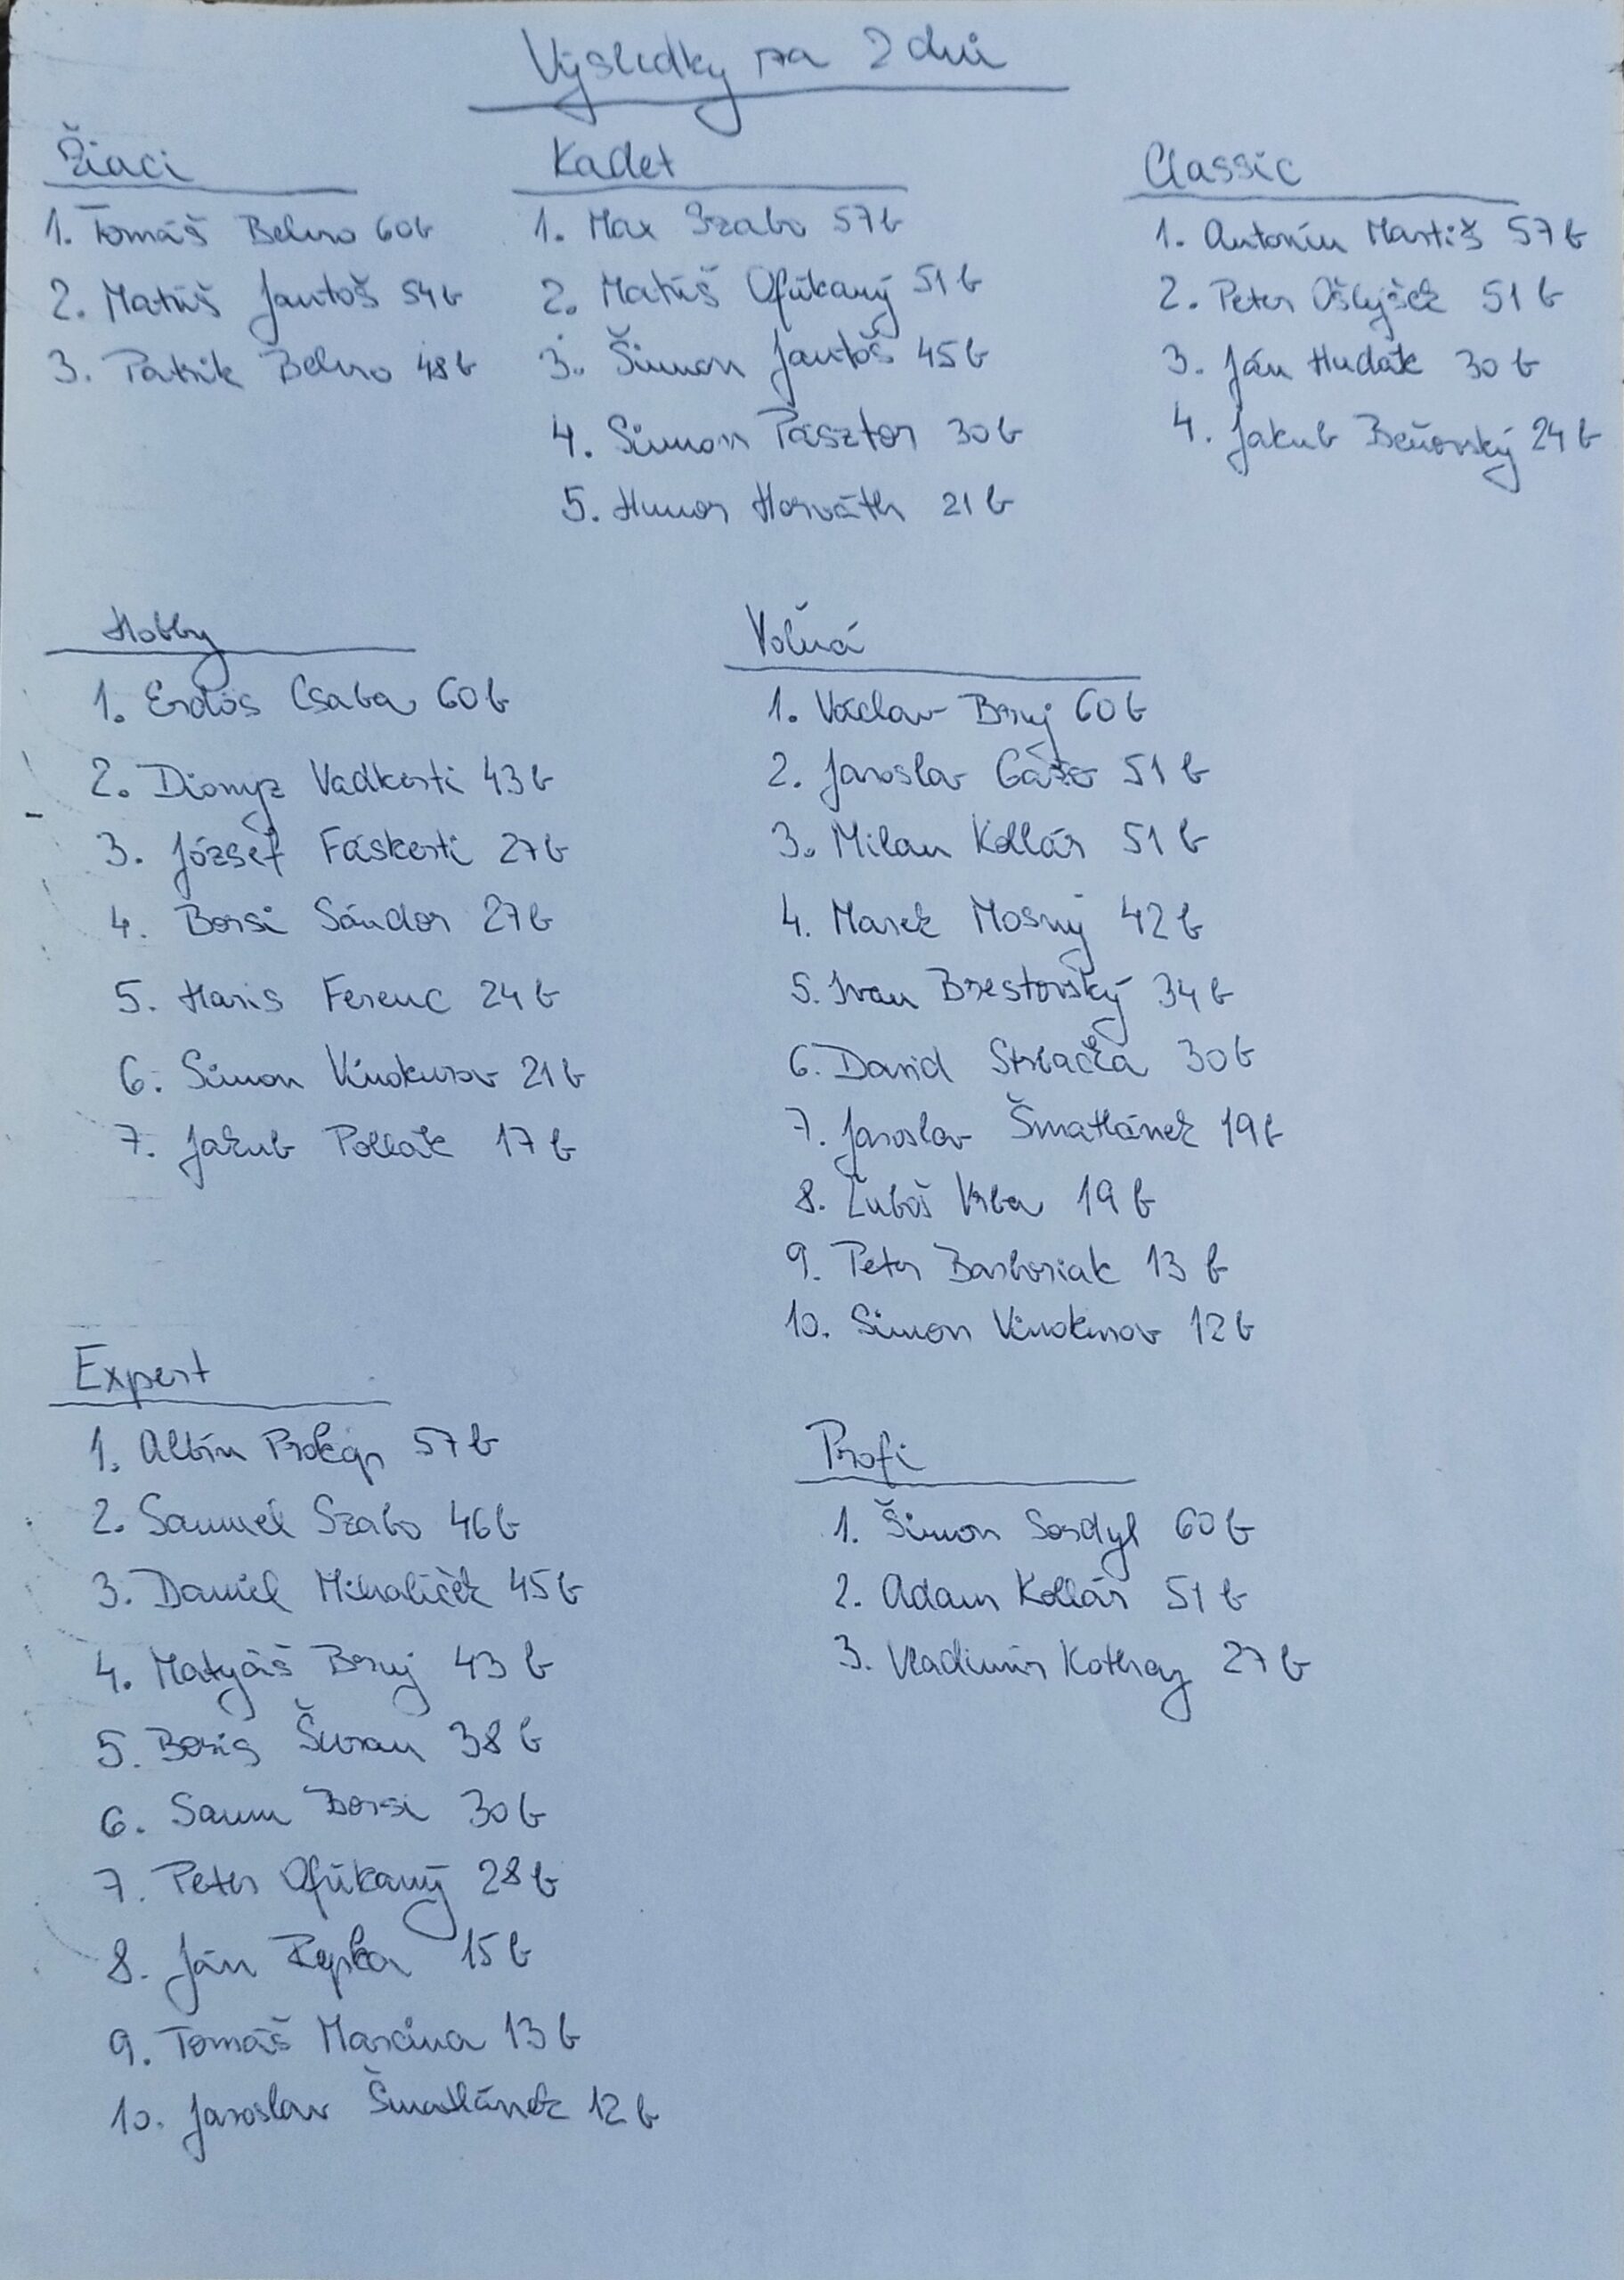 Výsledky za 2 dni
Žiaci
1. Tomáš Belno 60b
2. Matúš Jantoš 54b
3. Patrik Belno 48b
Kadet
1. Max Szabo 57b
2. Matúš Ofúkaný 51b
3. Šimon Jantoš 45b
4. Simon Pásztor 30b
5. Hunor Horváth 21b
Classic
1. Antonín Martiš 57b
2. Peter 51b
3. Ján Hudák 30b
4. Jakub Beňovský 24b
Hobby
1. Erdös Csaba 60b
2. Dionyz Vadkerti 43b
3. József Fáskerti 27b
4. Borsi Sándor 27b
5. Haris Ferenc 24b
6. Simon Vinokurov 21b
7. Jakub Pollák 17b
Voľná
1. Václav Brný 60b
2. Jaroslav 51b
3. Milan Kollár 51b
4. Marek Mosný 42b
5. Ivan Brestovský 34b
6. David Strbačka 30b
7. Jaroslav Šmatlánek 19b
8. Ľuboš Vrba 19b
9. Peter Barboriak 13b
10. Simon Vinokurov 12b
Expert
1. Albín Prokop 57b
2. Samuel Szabo 46b
3. Daniel Mihaliček 45b
4. Matyáš Brný 43b
5. Boris Švran 38b
6. Samu Borsi 30b
7. Peter Ofúkaný 28b
8. Ján Repka 15b
9. Tomáš Marcina 13b
10. Jaroslav Šmatlánek 12b
Profi
1. Šimon Sordyl 60b
2. Adam Kollár 51b
3. Vladimír Kothay 27b